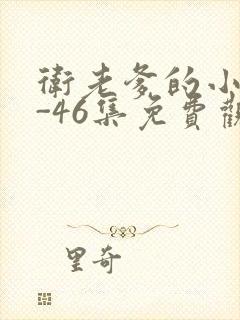 衛老爹的小
-46集免費觀
里奇